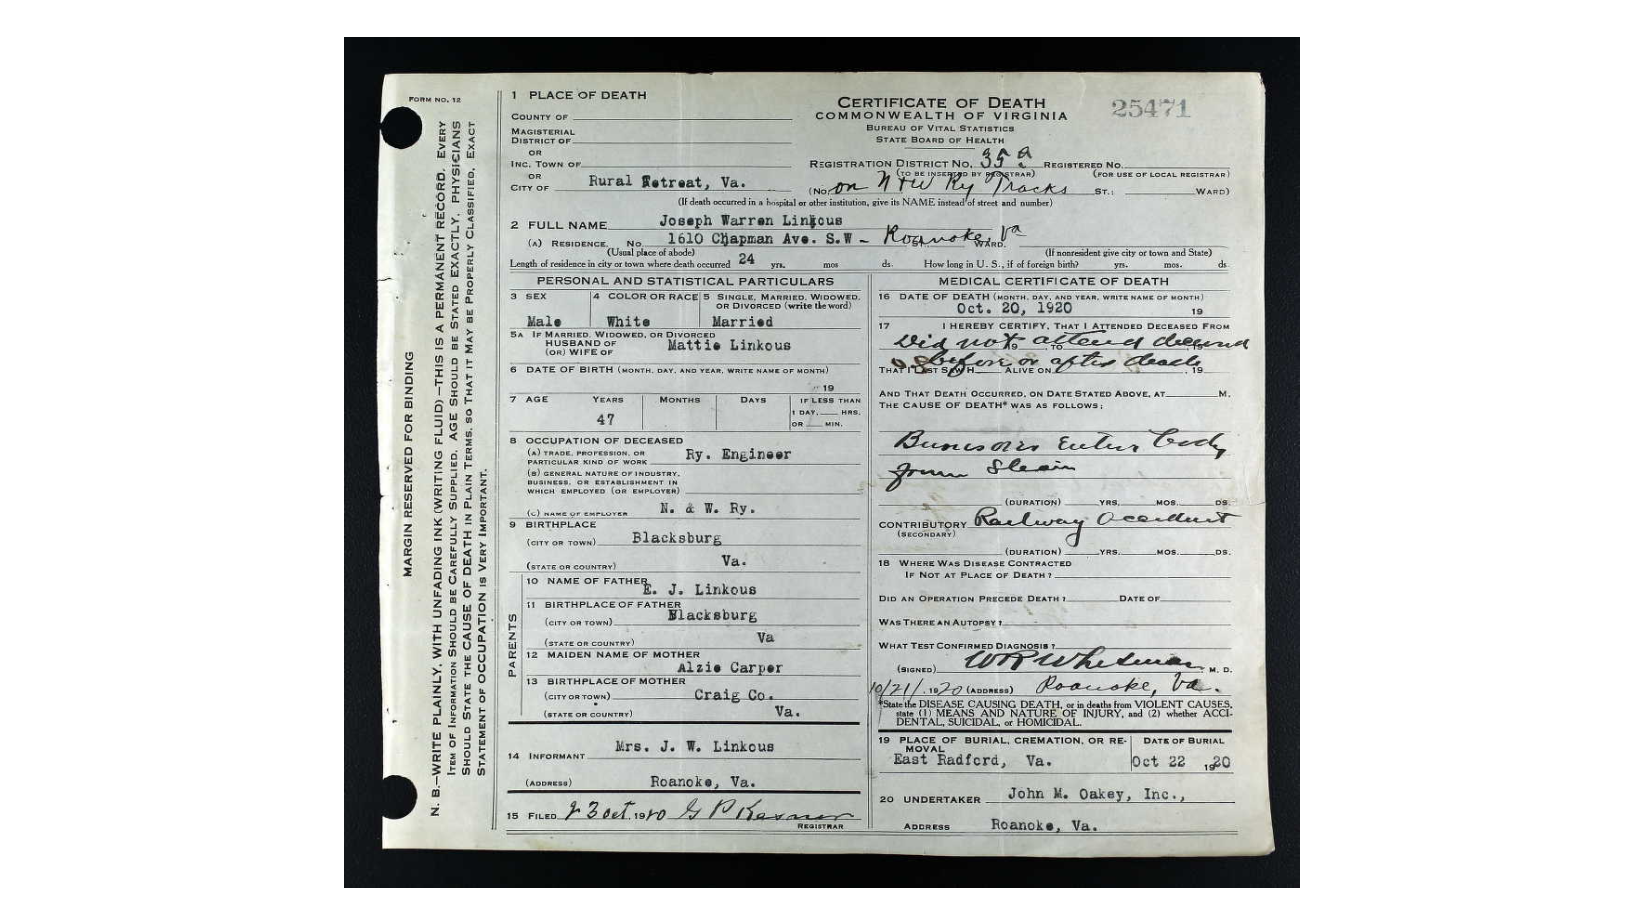 FORM NO. 12
MARGIN RESERVED FOR BINDING
N. B.—WRITE PLAINLY, WITH UNFADING INK (WRITING FLUID)—THIS IS A PERMANENT RECORD. EVERY
ITEM OF INFORMATION SHOULD BE CAREFULLY SUPPLIED. AGE SHOULD BE STATED EXACTLY. PHYSICIANS
SHOULD STATE THE CAUSE OF DEATH IN PLAIN TERMS, SO THAT IT MAY BE PROPERLY CLASSIFIED. EXACT
STATEMENT OF OCCUPATION IS VERY IMPORTANT.
1 PLACE OF DEATH
COUNTY OF
MAGISTERIAL
DISTRICT OF
OR
INC. TOWN OF
OR
CITY OF Rural Retreat, Va.
CERTIFICATE OF DEATH
COMMONWEALTH OF VIRGINIA
BUREAU OF VITAL STATISTICS
STATE BOARD OF HEALTH
25471
REGISTRATION DISTRICT NO. REGISTERED NO.
(TO BE INSERTED BY REGISTRAR) (FOR USE OF LOCAL REGISTRAR)
(No. on N & W Ry Tracks ST.; WARD)
(If death occurred in a hospital or other institution, give its NAME instead of street and number)
2 FULL NAME Joseph Warren Linkous
(A) RESIDENCE. No. 1610 Chapman Ave. S.W — Roanoke, Va WARD.
(Usual place of abode) (If nonresident give city or town and State)
Length of residence in city or town where death occurred 24 yrs. mos ds. How long in U. S., if of foreign birth? yrs. mos. ds
PERSONAL AND STATISTICAL PARTICULARS
3 SEX 4 COLOR OR RACE 5 SINGLE, MARRIED, WIDOWED,
OR DIVORCED (write the word)
Male White Married
5A IF MARRIED, WIDOWED, OR DIVORCED
HUSBAND OF
(OR) WIFE OF Mattie Linkous
6 DATE OF BIRTH (MONTH, DAY, AND YEAR, WRITE NAME OF MONTH)
19
7 AGE YEARS MONTHS DAYS IF LESS THAN
1 DAY, HRS.
OR MIN.
47
8 OCCUPATION OF DECEASED
(A) TRADE, PROFESSION, OR
PARTICULAR KIND OF WORK Ry. Engineer
(B) GENERAL NATURE OF INDUSTRY,
BUSINESS, OR ESTABLISHMENT IN
WHICH EMPLOYED (OR EMPLOYER)
(C) NAME OF EMPLOYER N. & W. Ry.
9 BIRTHPLACE
(CITY OR TOWN) Blacksburg
(STATE OR COUNTRY) Va.
PARENTS
10 NAME OF FATHER E. J. Linkous
11 BIRTHPLACE OF FATHER
(CITY OR TOWN) Blacksburg
(STATE OR COUNTRY) Va
12 MAIDEN NAME OF MOTHER
Alzie Carper
13 BIRTHPLACE OF MOTHER
(CITY OR TOWN) Craig Co.
(STATE OR COUNTRY) Va.
14 INFORMANT Mrs. J. W. Linkous
(ADDRESS) Roanoke, Va.
15 FILED 23 Oct, 19
REGISTRAR
MEDICAL CERTIFICATE OF DEATH
16 DATE OF DEATH (MONTH, DAY, AND YEAR, WRITE NAME OF MONTH)
Oct. 20, 1920 19
17 I HEREBY CERTIFY, THAT I ATTENDED DECEASED FROM
Did not attend deceased
before or after death
THAT I LAST SAW H ALIVE ON , 19
AND THAT DEATH OCCURRED, ON DATE STATED ABOVE, AT M.
THE CAUSE OF DEATH* WAS AS FOLLOWS:
Burns over Entire body
from Steam
(DURATION) YRS. MOS. DS.
CONTRIBUTORY Railway Accident
(SECONDARY)
(DURATION) YRS. MOS. DS.
18 WHERE WAS DISEASE CONTRACTED
IF NOT AT PLACE OF DEATH?
DID AN OPERATION PRECEDE DEATH? DATE OF
WAS THERE AN AUTOPSY?
WHAT TEST CONFIRMED DIAGNOSIS?
(SIGNED) M. D.
10/21/, 1920 (ADDRESS) Roanoke, Va.
*State the DISEASE CAUSING DEATH, or in deaths from VIOLENT CAUSES,
state (1) MEANS AND NATURE OF INJURY, and (2) whether ACCI-
DENTAL, SUICIDAL, or HOMICIDAL.
19 PLACE OF BURIAL, CREMATION, OR RE- DATE OF BURIAL
MOVAL
East Radford, Va. Oct 22 1920
20 UNDERTAKER John M. Oakey, Inc.,
ADDRESS Roanoke, Va.